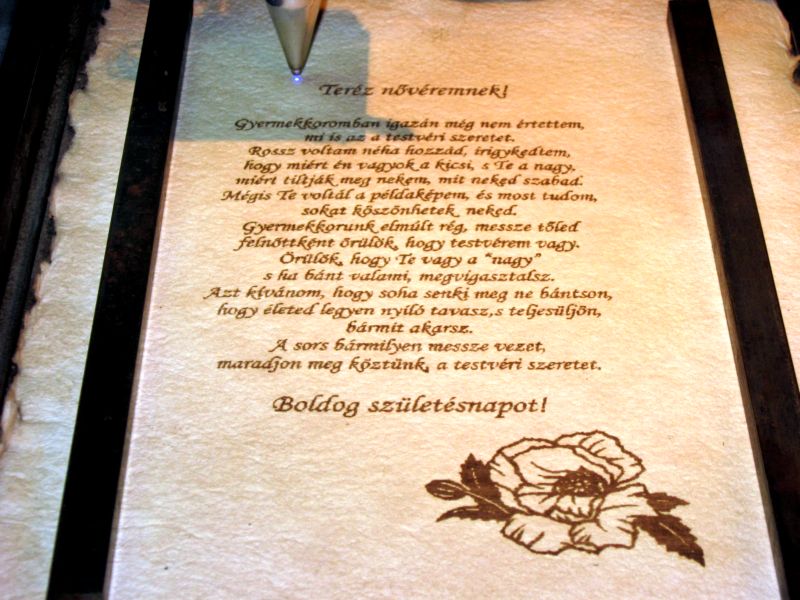 Teréz nővéremnek!
Gyermekkoromban igazán még nem értettem,
mi is az a testvéri szeretet.
Rossz voltam néha hozzád, irigykedtem,
hogy miért én vagyok a kicsi, s Te a nagy,
miért tiltják meg nekem, mit neked szabad.
Mégis Te voltál a példaképem, és most tudom,
sokat köszönhetek neked.
Gyermekkorunk elmúlt rég, messze tőled
felnőttként örülök, hogy testvérem vagy.
Örülök, hogy Te vagy a "nagy"
s ha bánt valami, megvigasztalsz.
Azt kívánom, hogy soha senki meg ne bántson,
hogy életed legyen nyíló tavasz,s teljesüljön,
bármit akarsz.
A sors bármilyen messze vezet,
maradjon meg köztünk, a testvéri szeretet.
Boldog születésnapot!